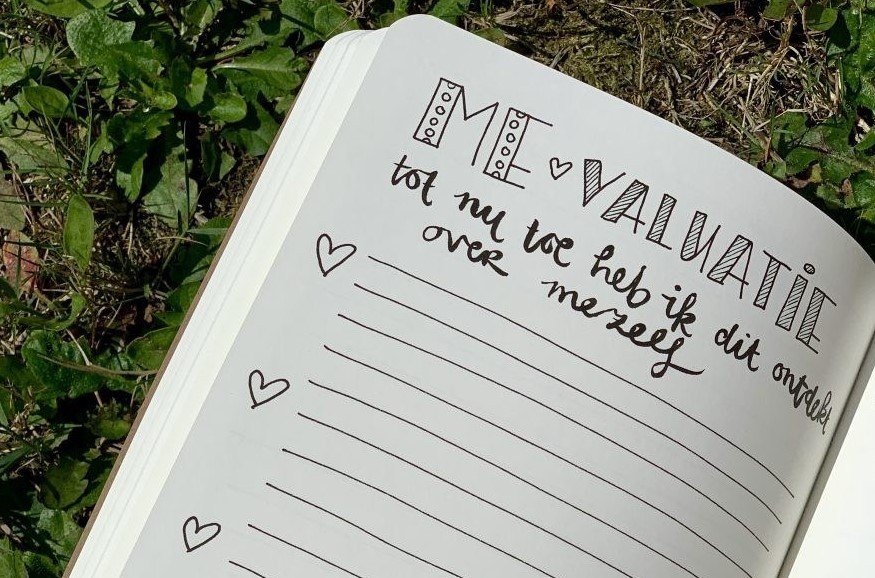 ME ♥ VALUATIE
tot nu toe heb ik dit ontdekt
over mezelf